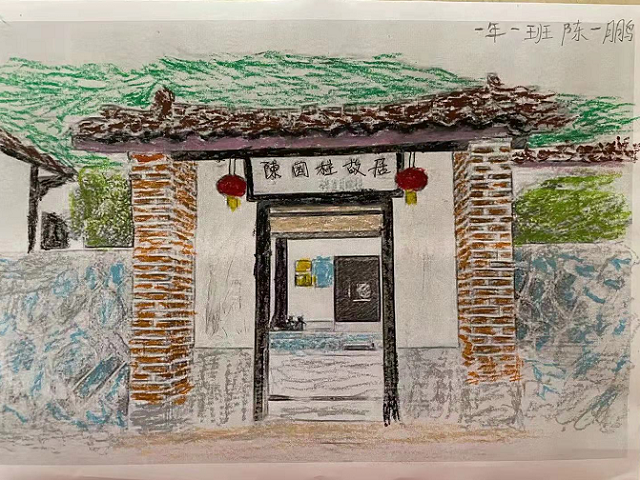 一年一班 陈一鹏
陳國柱故居